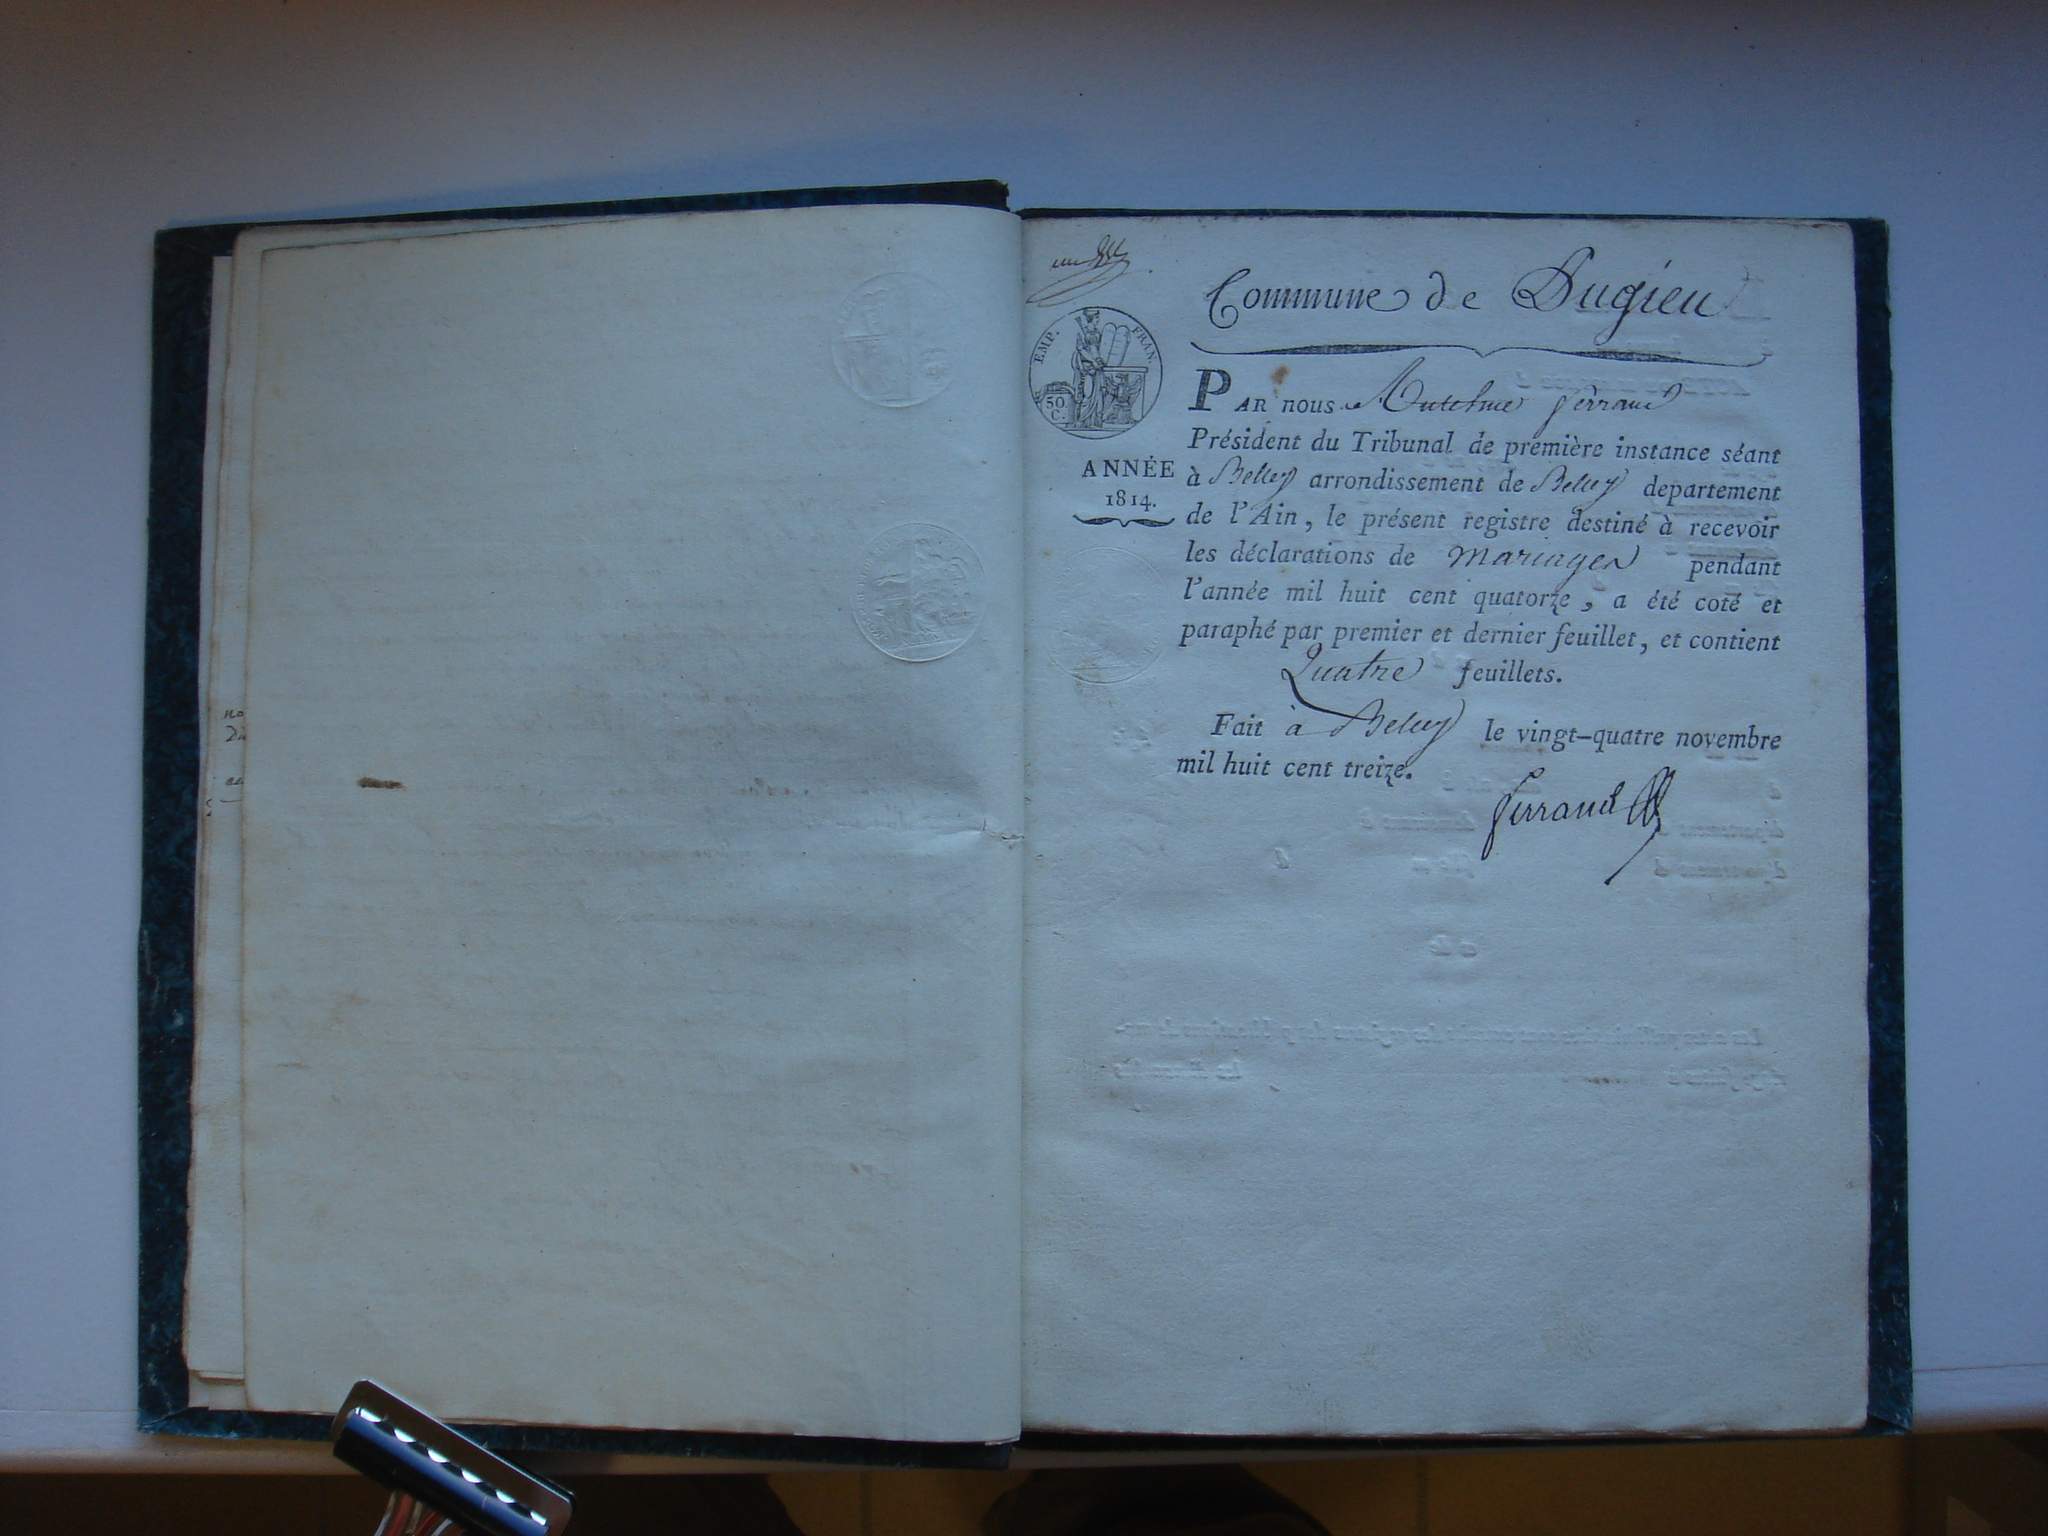 un
Commune de Pugieu
EMP. FRAN.
50.
C.
PAR nous Anthelme Ferrand
Président du Tribunal de première instance séant
à Belley arrondissement de Belley departement
ANNÉE
1814.
de l'Ain, le présent registre destiné à recevoir
les déclarations de mariages pendant
l'année mil huit cent quatorze, a été coté et
paraphé par premier et dernier feuillet, et contient
Quatre feuillets.
Fait à Belley le vingt-quatre novembre
mil huit cent treize.
Ferrand